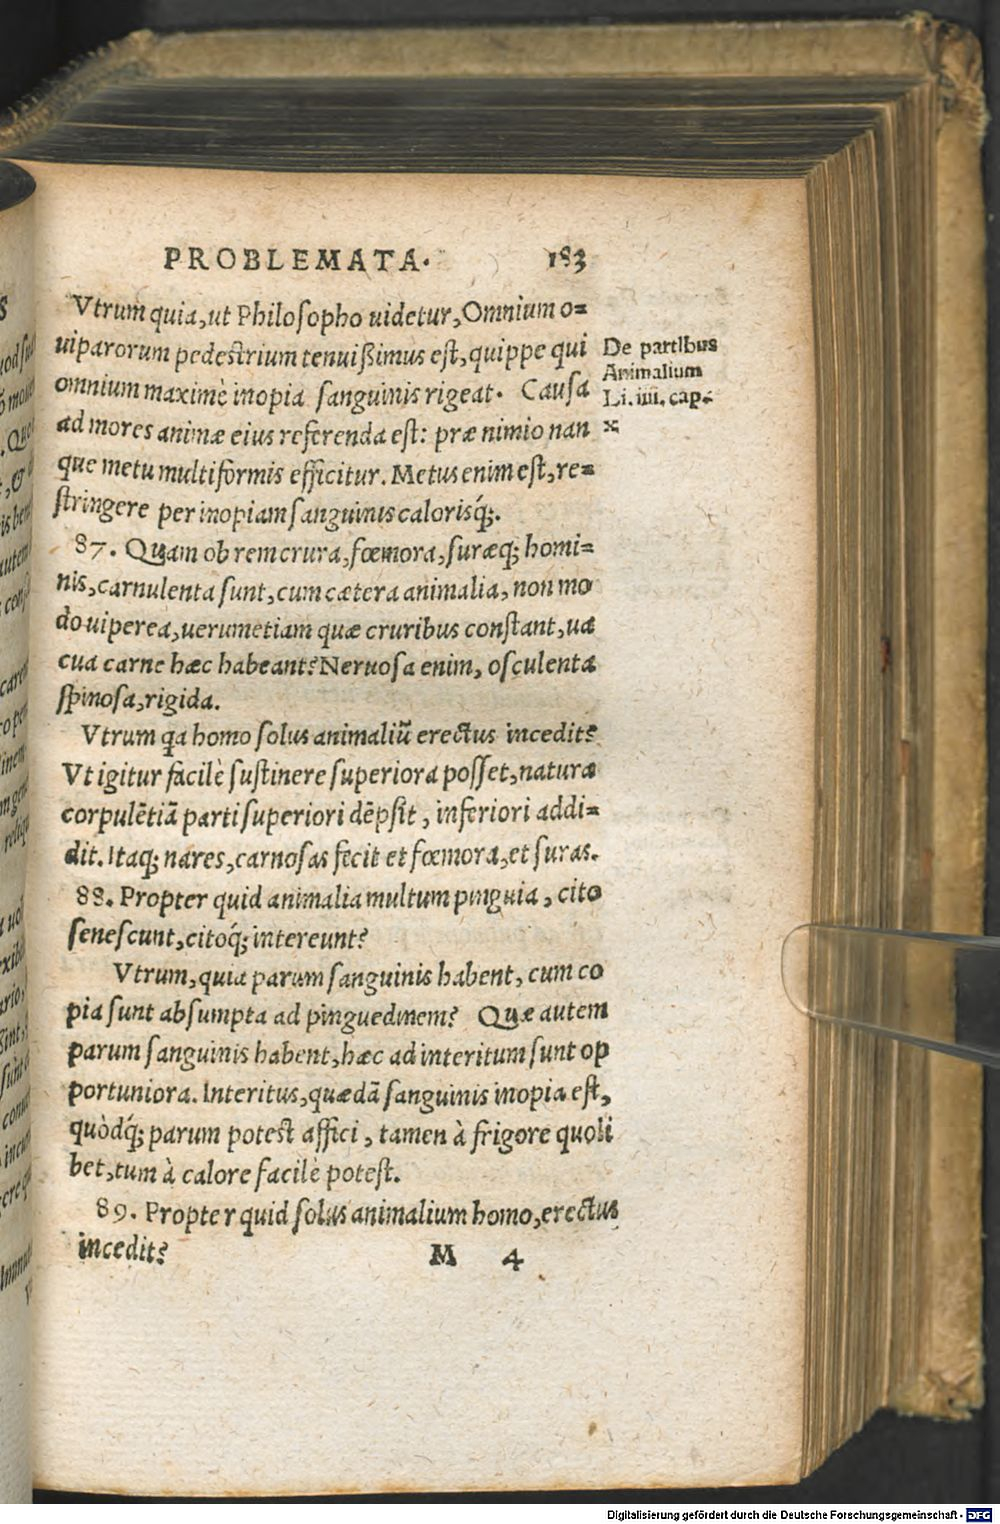 PROBLEMATA. 183
Vtrum quia, ut Philosopho uidetur, Omnium o=
uiparorum pedestrium tenuißimus est, quippe qui
omnium maximè inopia sanguinis rigeat. Causa
ad mores animæ eius referenda est: præ nimio nan
que metu multiformis efficitur. Metus enim est, re=
stringere per inopiam sanguinis calorisq́;.
De partibus
Animalium
Li. iiii. cap.
x.
87. Quam ob rem crura, fœmora, suræq; homi=
nis, carnulenta sunt, cum cætera animalia, non mo
do uiperea, uerumetiam quæ cruribus constant, ua
cua carne hæc habeant? Neruosa enim, osculenta
spinosa, rigida.
Vtrum qa homo solus animaliũ erectus incedit?
Vt igitur facilè sustinere superiora posset, natura
corpulẽtiã parti superiori dẽpsit, inferiori addi=
dit. Itaq; nares, carnosas fecit et fœmora, et suras.
88. Propter quid animalia multum pinguia, cito
senescunt, citoq́; intereunt?
Vtrum, quia parum sanguinis habent, cum co
pia sunt absumpta ad pinguedinem? Quæ autem
parum sanguinis habent, hæc ad interitum sunt op
portuniora. Interitus, quædã sanguinis inopia est,
quòdq́; parum potest affici, tamen à frigore quoli
bet, tum à calore facilè potest.
89. Propter quid solus animalium homo, erectus
incedit?
M 4
Digitalisierung gefördert durch die Deutsche Forschungsgemeinschaft - DFG